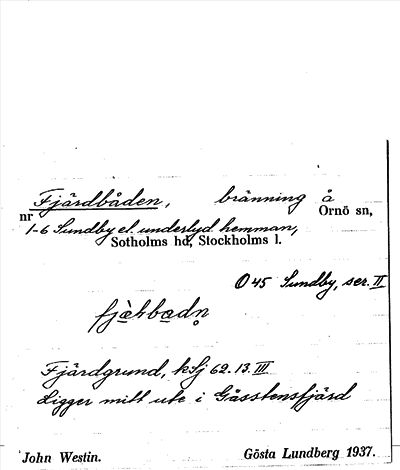 Fjärdbåden, bränning å
nr Ornö sn,
1-6 Sundby el. underlyd. hemman,
Sotholms hd, Stockholms l.
O 45 Sundby, ser. II
Fjärdgrund, kSj 62.13.III
Ligger mitt ute i Gåsstensfjärd
John Westin. Gösta Lundberg 1937.